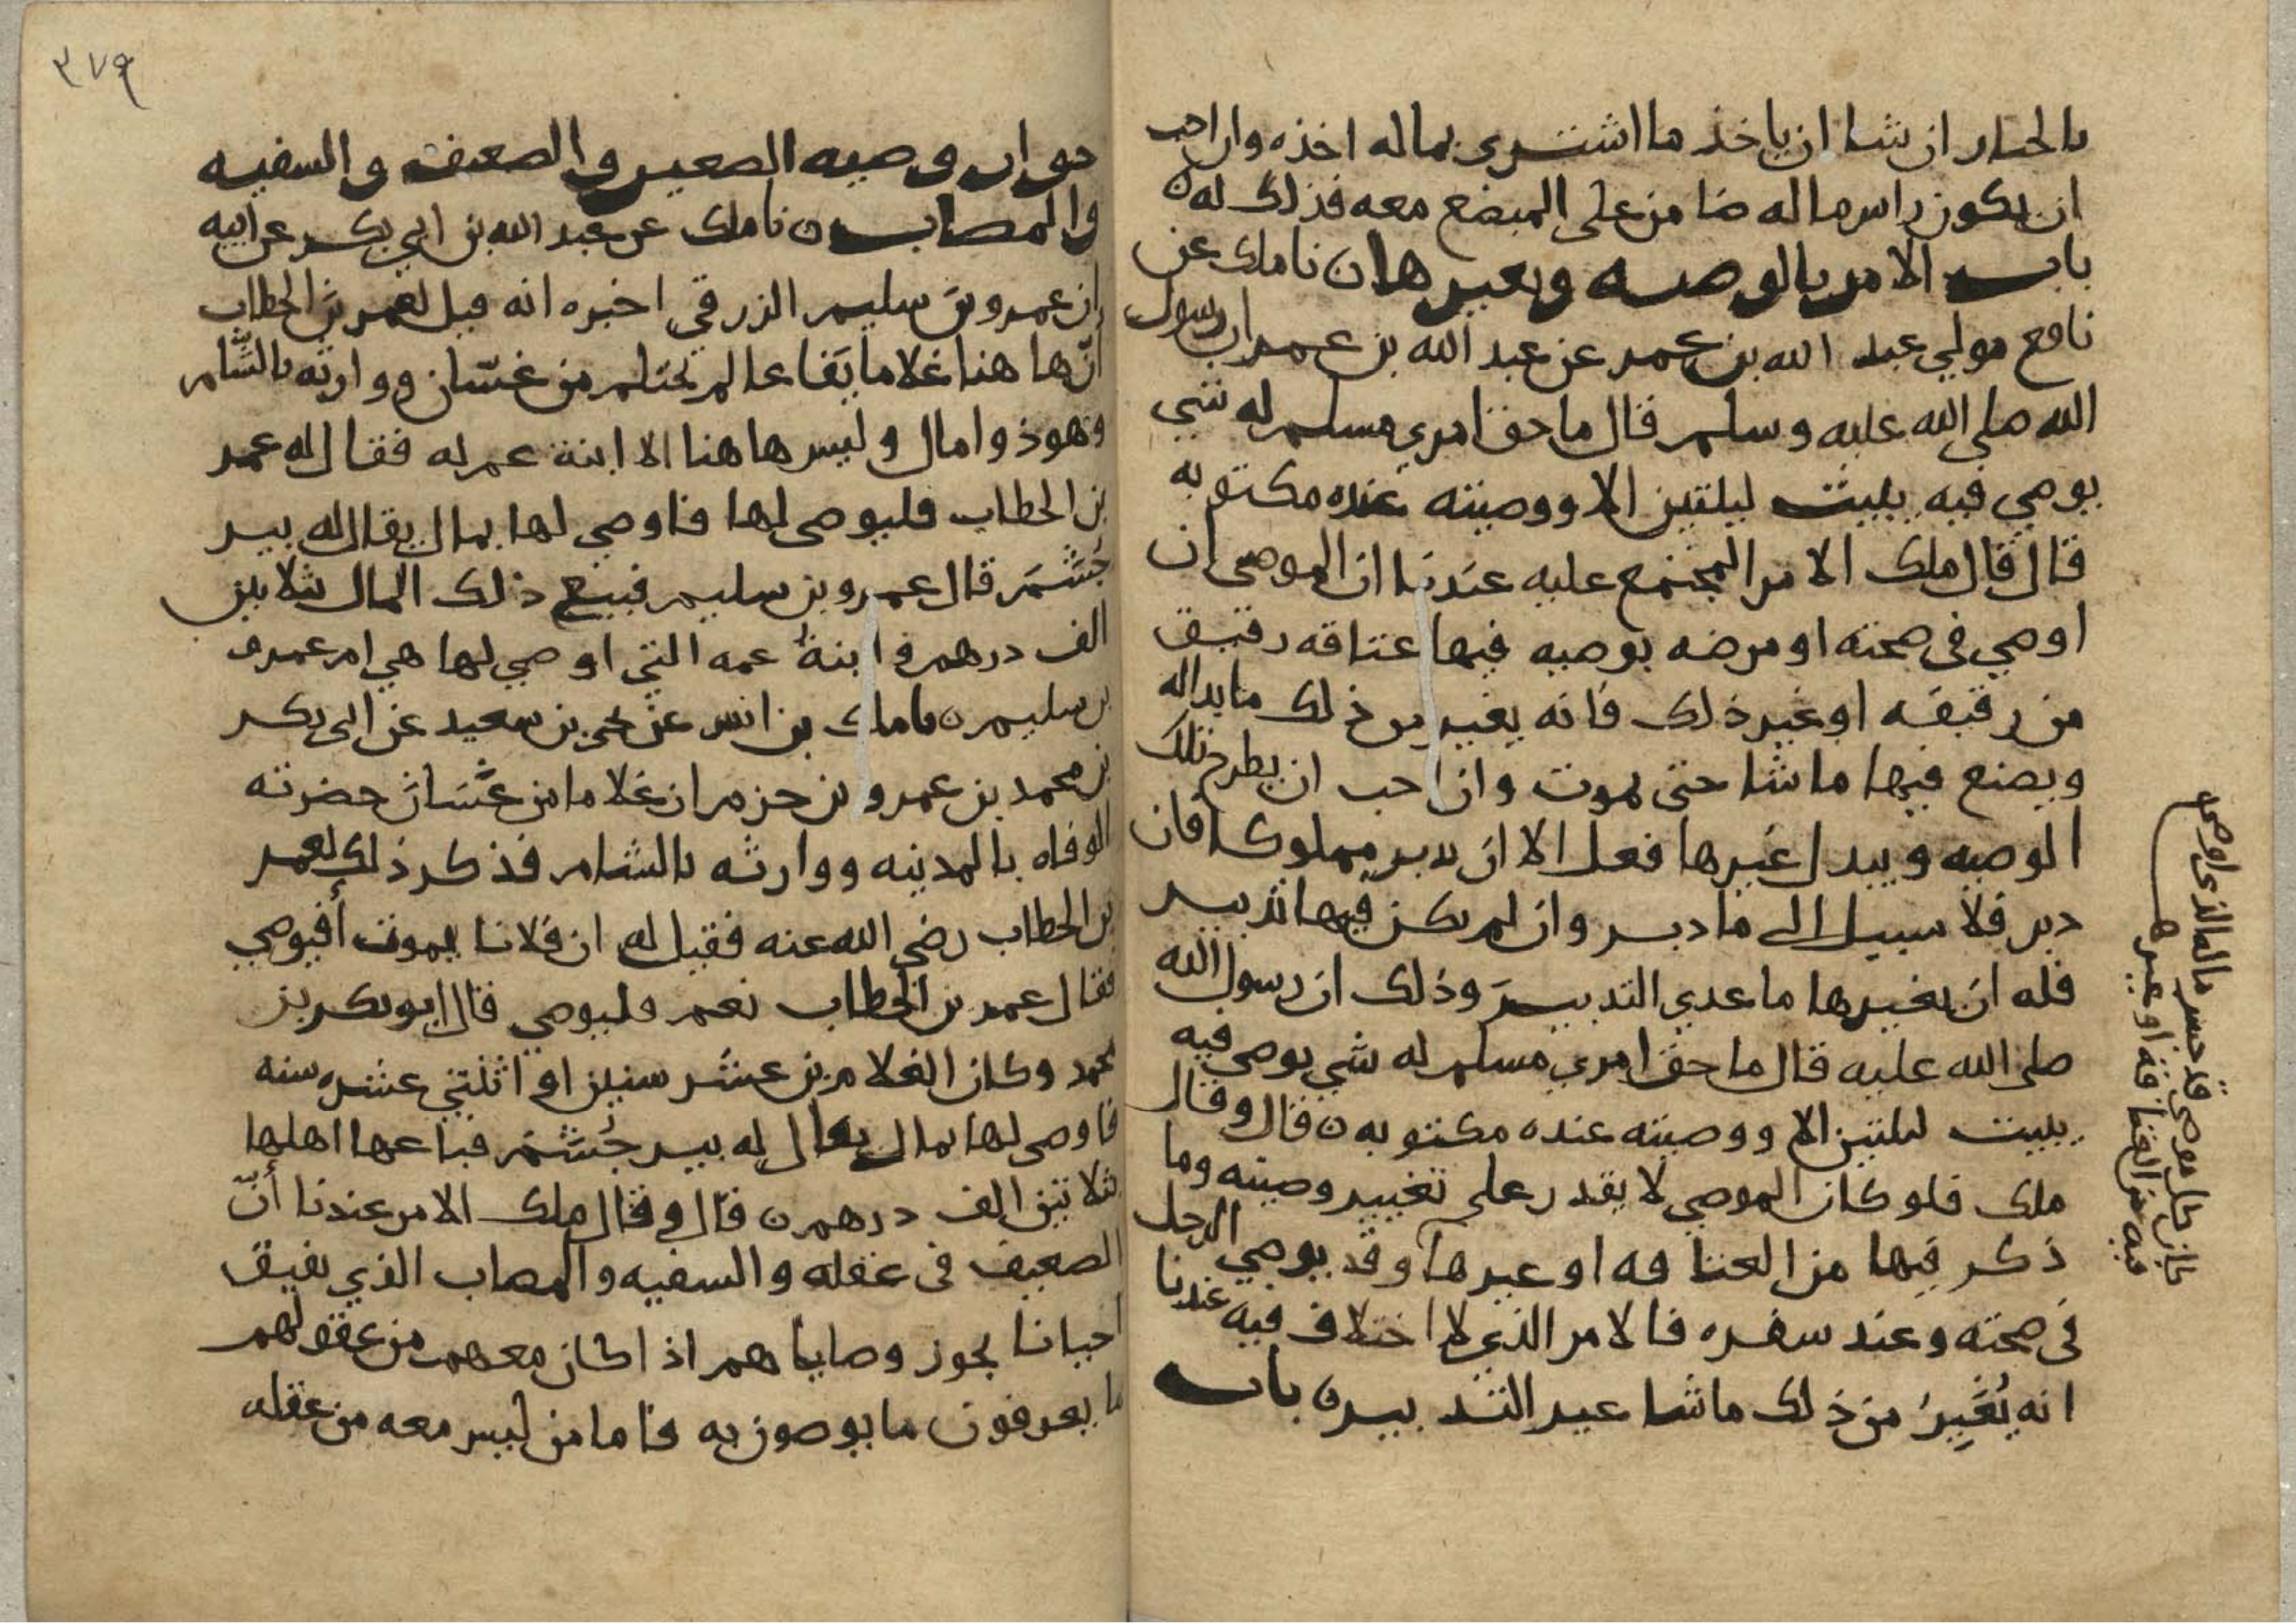 بالخيار ان شا ان ياخذ ما اشترى بماله اخذه وان احب
ان يكون راس ماله ضامن على المبضع معه فذلك له ن
باب الامر بالوصيه وتغييرها ن نا ملك عن
نافع مولي عبد الله بن عمر عن عبد الله بن عمر ان رسول
الله صلى الله عليه وسلم قال ما حق امري مسلم له شي
يوصي فيه يبيت ليلتين الا ووصيته عنده مكتوبه
قال قال ملك الامر المجتمع عليه عندنا ان الموصي ان
اوصي في صحته او مرضه بوصيه فيها عتاقه رقيق
من رقيقه او غير ذلك فانه يغير من ذلك ما بدا له
ويصنع فيها ما شا حتى يموت وان احب ان يطرح تلك
الوصيه ويبدل غيرها فعل الا ان يدبر مملوكا فان
دبر فلا سبيل الى ما دبر وان لم يكن فيها تدبير
فله ان يغيرها ما عدي التدبير وذلك ان رسول الله
صلى الله عليه قال ما حق امري مسلم له شي يوصي فيه
يبيت ليلتين الا ووصيته عنده مكتوبه ن قال وقال
ملك فلو كان الموصي لا يقدر على تغيير وصيته وما
ذكر فيها من العتاقه او غيرها وقد يوصي الرجل
في صحته وعند سفره فالامر الذي لا اختلاف فيه عندنا
انه يُغَيِرُ من ذلك ما شا غير التدبير ن باب
كان كل موصي قد حبس ماله الذي اوصى
فيه من العتاقة او غيرها
٣٧٩
جواز وصيه الصغير والضعيف والسفيه
والمصاب ن نا ملك عن عبد الله بن ابي بكر عن ابيه
ان عمرو بن سليم الزرقي اخبره انه قيل لعمر بن الخطاب
أنّ ها هنا غلاما يَفاعا لم يحتلم من غسّان ووارثه بالشّام
وهو ذو امال وليس ها هنا الا ابنة عم له فقال له عمر
بن الخطاب فليوصي لها فاوصي لها بمال يقال له بير
جُشَمَ قال عمرو بن سليم فبيع ذلك المال بثلاثين
الف درهم وابنةُ عمه التي اوصي لها هي ام عمرو
بن سليم ن نا ملك بن انس عن يحي بن سعيد عن ابي بكر
بن محمد بن عمرو بن حزم ان غلاما من غسّان حضرته
الوفاه بالمدينه ووارثه بالشام فذكر ذلك لعمر
بن الخطاب رضي الله عنه فقيل له ان فلانا يموت أفيوصي
فقال عمر بن الخطاب نعم فليوصي قال ابو بكر بن
محمد وكان الغلام بن عشر سنين او اثنتي عشره سنه
فاوصي لها بمال يقال له بير جُشَمَ فباعها اهلها
بثلاثين الف درهم ن قال وقال ملك الامر عندنا أنّ
الضعيف في عقله والسفيه والمصاب الذي يفيق
احيانا يجوز وصاياهم اذا كان معهم من عقولهم
ما يعرفون ما يوصون به فاما من ليس معه من عقله